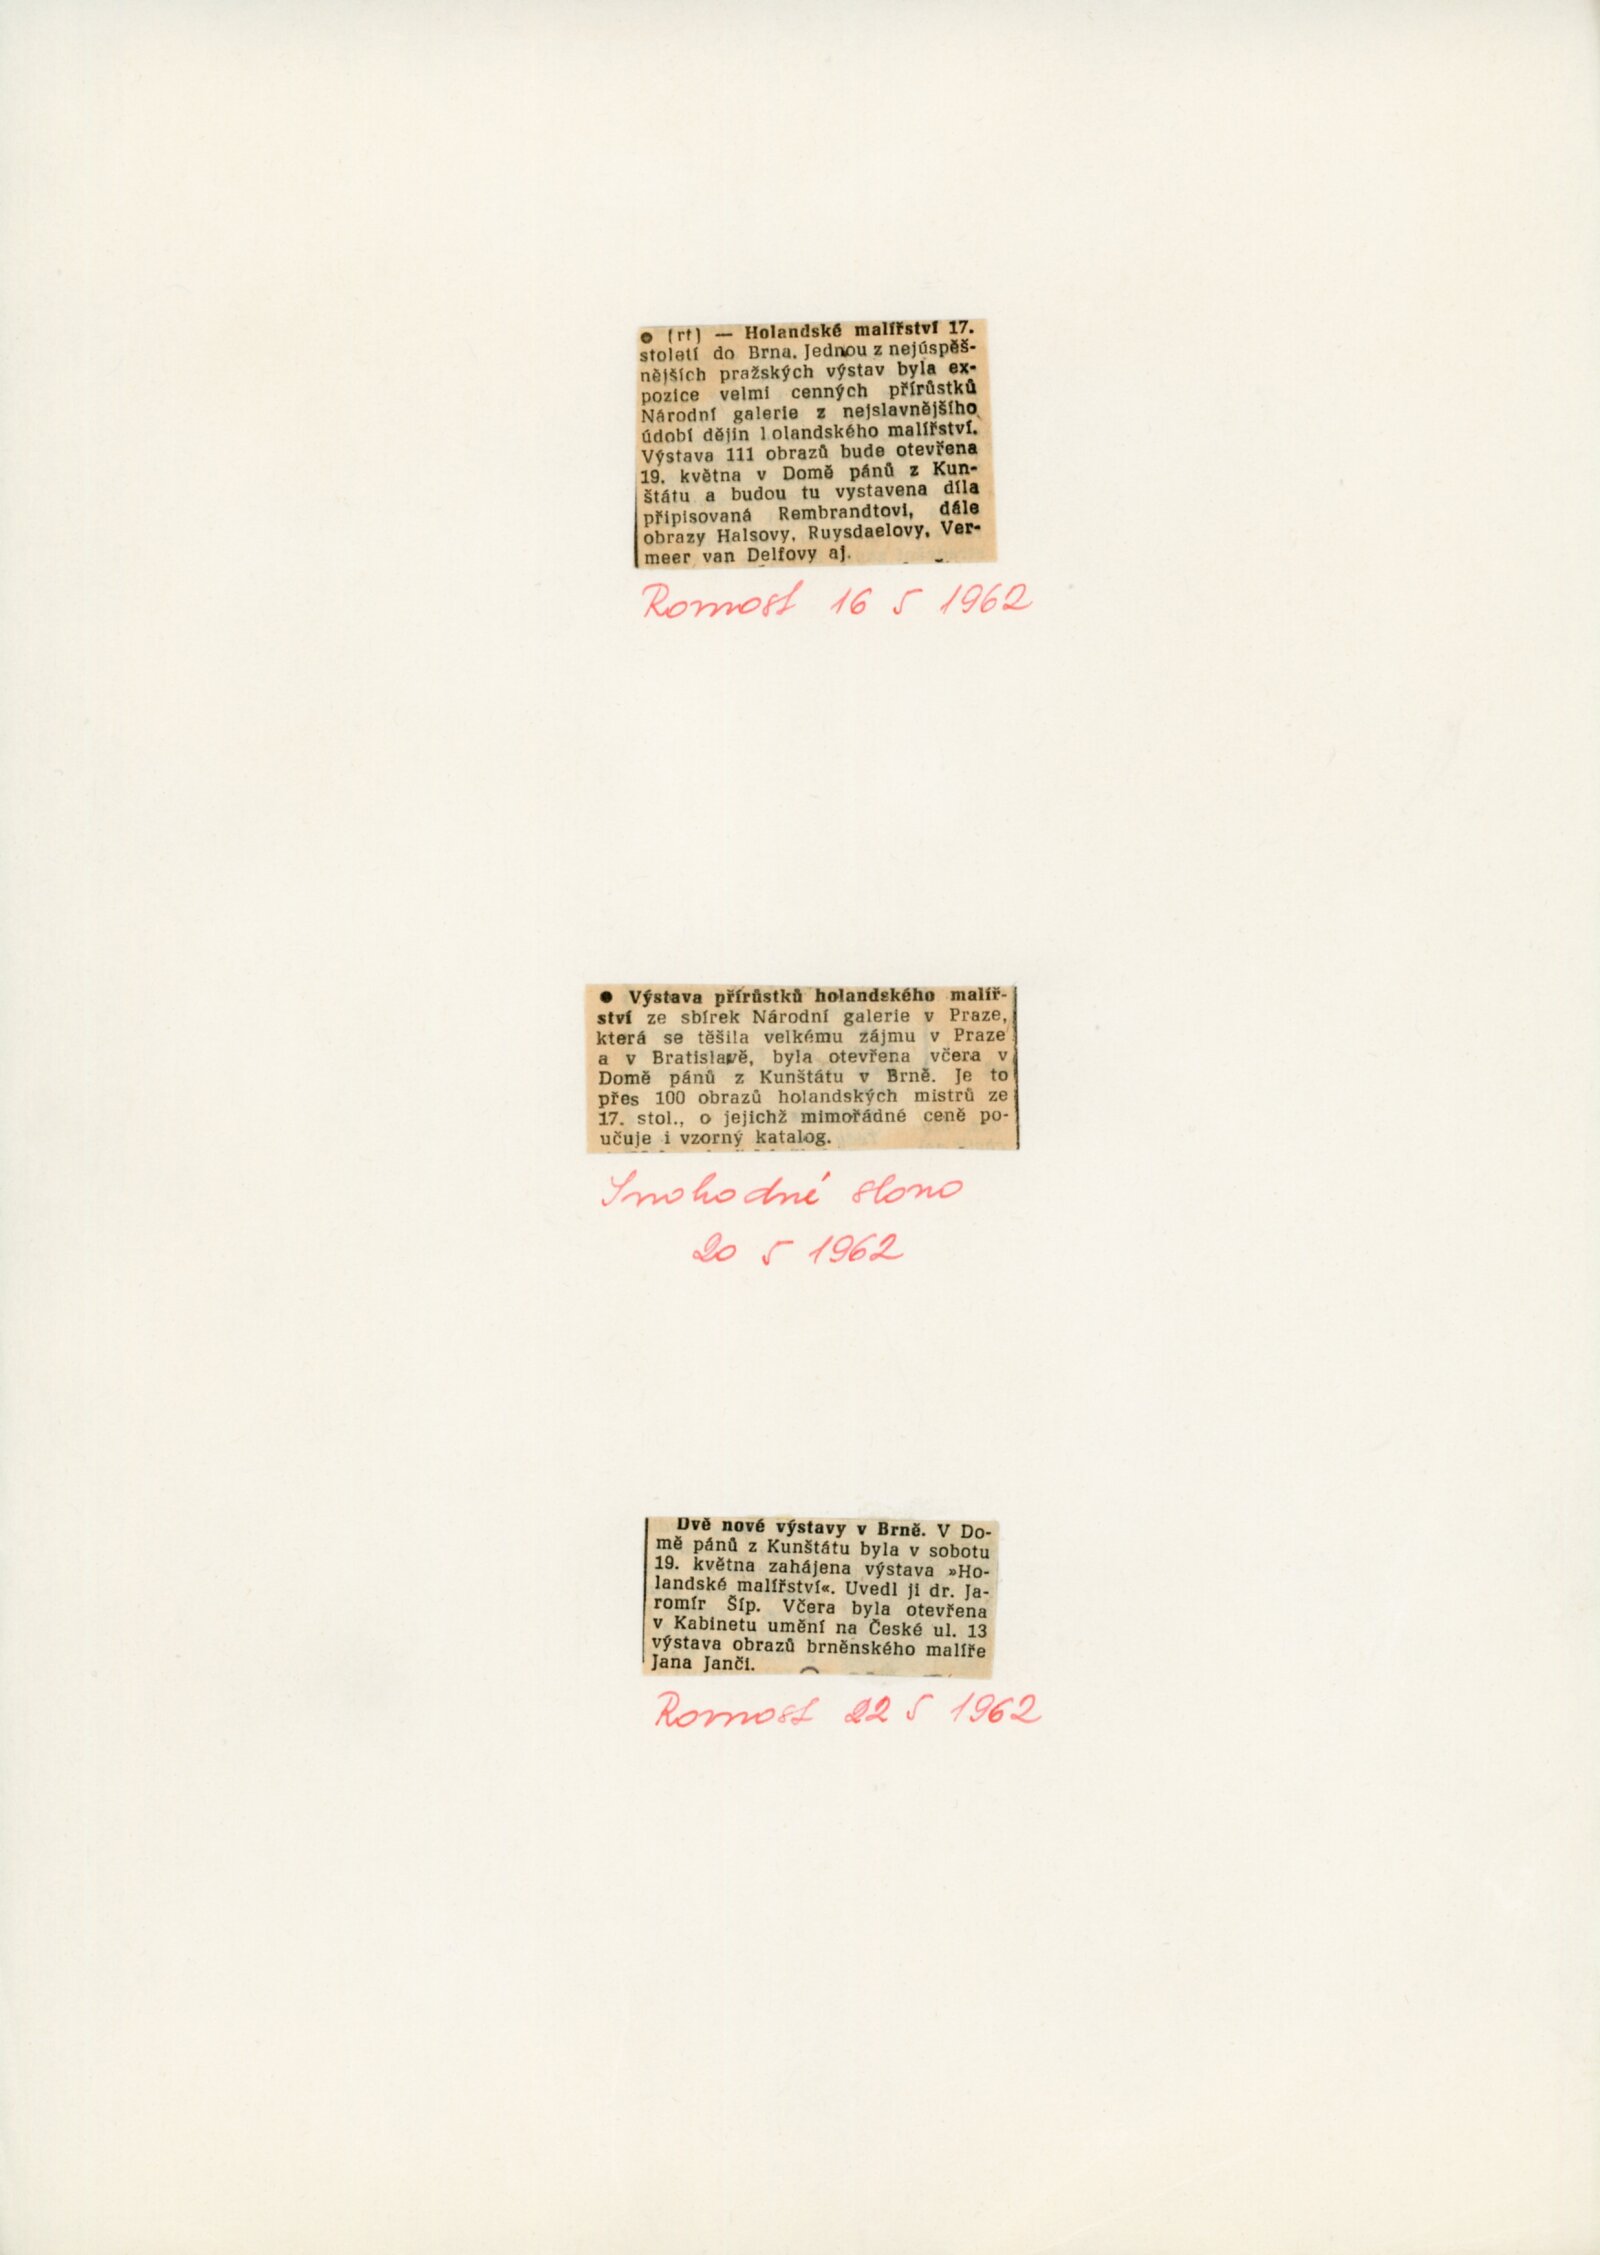 ● (rt) — Holandské malířství 17.
století do Brna. Jednou z nejúspěš-
nějších pražských výstav byla ex-
pozice velmi cenných přírůstků
Národní galerie z nejslavnějšího
údobí dějin lolandského malířství.
Výstava 111 obrazů bude otevřena
19. května v Domě pánů z Kun-
štátu a budou tu vystavena díla
připisovaná Rembrandtovi, dále
obrazy Halsovy, Ruysdaelovy, Ver-
meer van Delfovy aj.
Rovnost 16 5 1962
● Výstava přírůstků holandského malíř-
ství ze sbírek Národní galerie v Praze,
která se těšila velkému zájmu v Praze
a v Bratislavě, byla otevřena včera v
Domě pánů z Kunštátu v Brně. Je to
přes 100 obrazů holandských mistrů ze
17. stol., o jejichž mimořádné ceně po-
učuje i vzorný katalog.
Svobodné slovo
20 5 1962
Dvě nové výstavy v Brně. V Do-
mě pánů z Kunštátu byla v sobotu
19. května zahájena výstava »Ho-
landské malířství«. Uvedl ji dr. Ja-
romír Šíp. Včera byla otevřena
v Kabinetu umění na České ul. 13
výstava obrazů brněnského malíře
Jana Janči.
Rovnost 22 5 1962